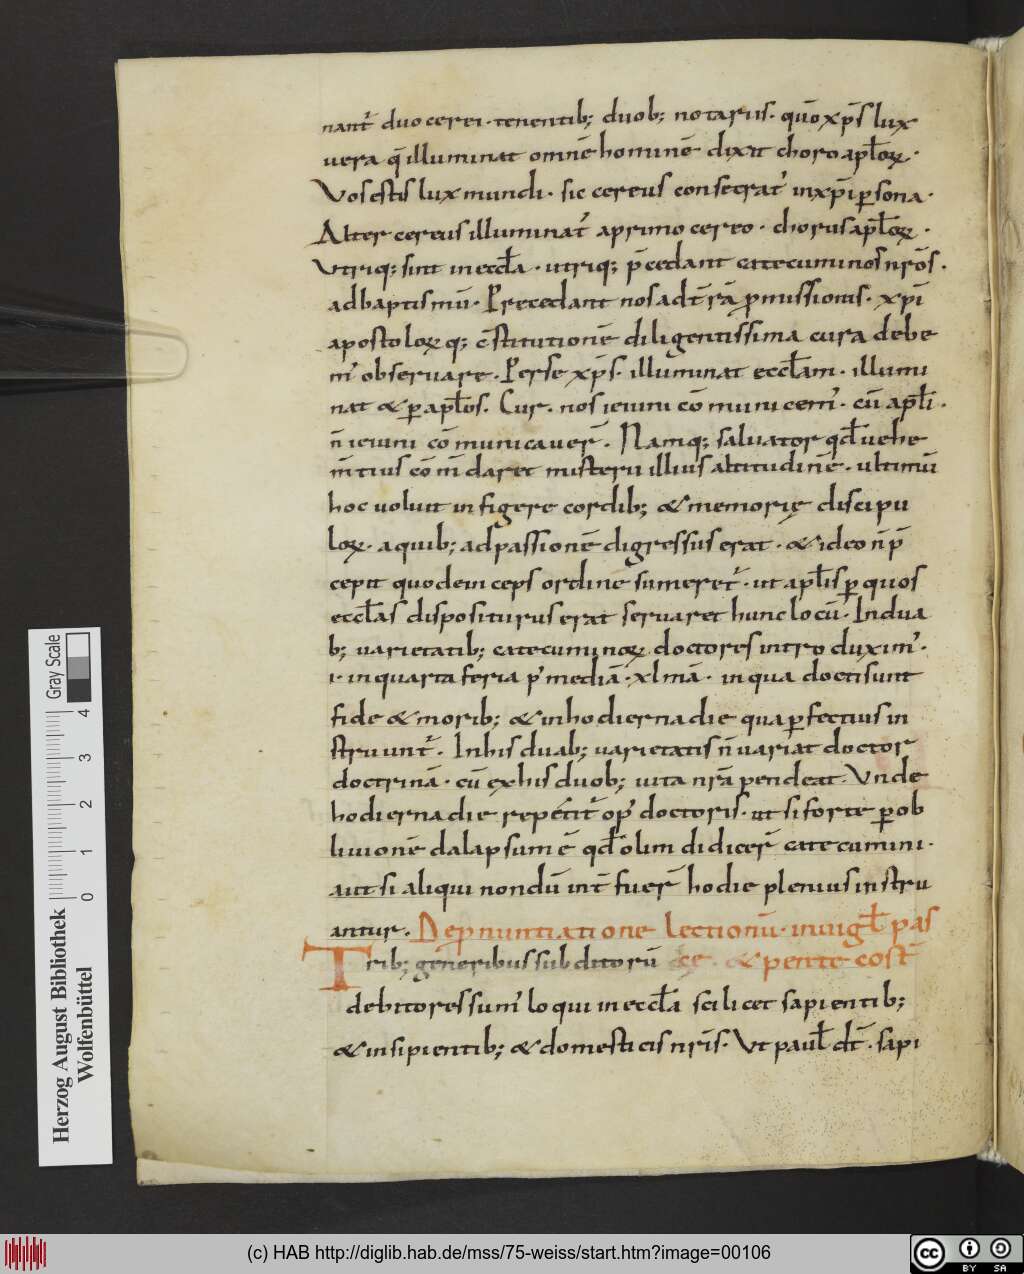 nant̄ duo cerei · tenentib; duob; notariis · quō xp̄s lux
uera q̄ illuminat omnē hominē dixit choro apl̄oꝝ ·
Vos estis lux mundi · sic cereus consecrat̉ in xp̄i ꝑsona ·
Alter cereus illuminat̉ a primo cereo · chorus apl̄oꝝ ·
Vtriq; sint in eccl̄a · utriq; p̄cedant catecuminos nr̄os ·
ad baptismū · Precedant nos ad t̄rā ꝓmissionis · xp̄i
apostoloꝝ q; c̄stitutionē diligentissima cura debe
m̉ obseruare · Per se xp̄s · illuminat eccl̄am · illumi
nat & ꝑ apl̄os · Cur · nos ieiuni cōmunicem̉ · cū apl̄i ·
n̄ ieiuni cōmunicauer̄ · Namq; saluator qd̄ uehe
m̄tius cōm̄daret misterii illius altitudinē · ultimū
hoc uoluit infigere cordib; & memorię discipu
loꝝ · a quib; ad passionē digressus erat · & ideo n̄ p̄
cepit quo deinceps ordine sumeret̉ · ut apl̄is ꝑ quos
eccl̄as dispositurus erat seruaret hunc locū · In dua
b; uarietatib; catecuminoꝝ doctores introduxim̉ ·
i · in quarta feria p̉ mediā · xlmā · in qua docti sunt
fide & morib; & in hodierna die qua ꝑfectius in
struunt̉ · In his duab; uarietatis n̄ uariat doctor
doctrinā · cū ex his duob; uita nr̄a pendeat · Vnde
hodierna die repetit̉ op̉ doctoris · ut si forte ꝑ ob
liuionē dalapsum ē qd̄ olim didicer̄ catecumini ·
aut si aliqui nondū int̄ fuer̄ hodie plenius instru
antur · De ꝓnuntiatione lectionū · in uigl̄ pas
Trib; generibus subditorū ce · & pentecost̄
debitores sum̉ loqui in eccl̄a scilicet sapientib;
& insipientib; & domesticis nr̄is · Vt paul̄ dt̄ · sapi
Gray Scale
0 1 2 3 4
Herzog August Bibliothek
Wolfenbüttel
(c) HAB http://diglib.hab.de/mss/75-weiss/start.htm?image=00106
cc BY SA